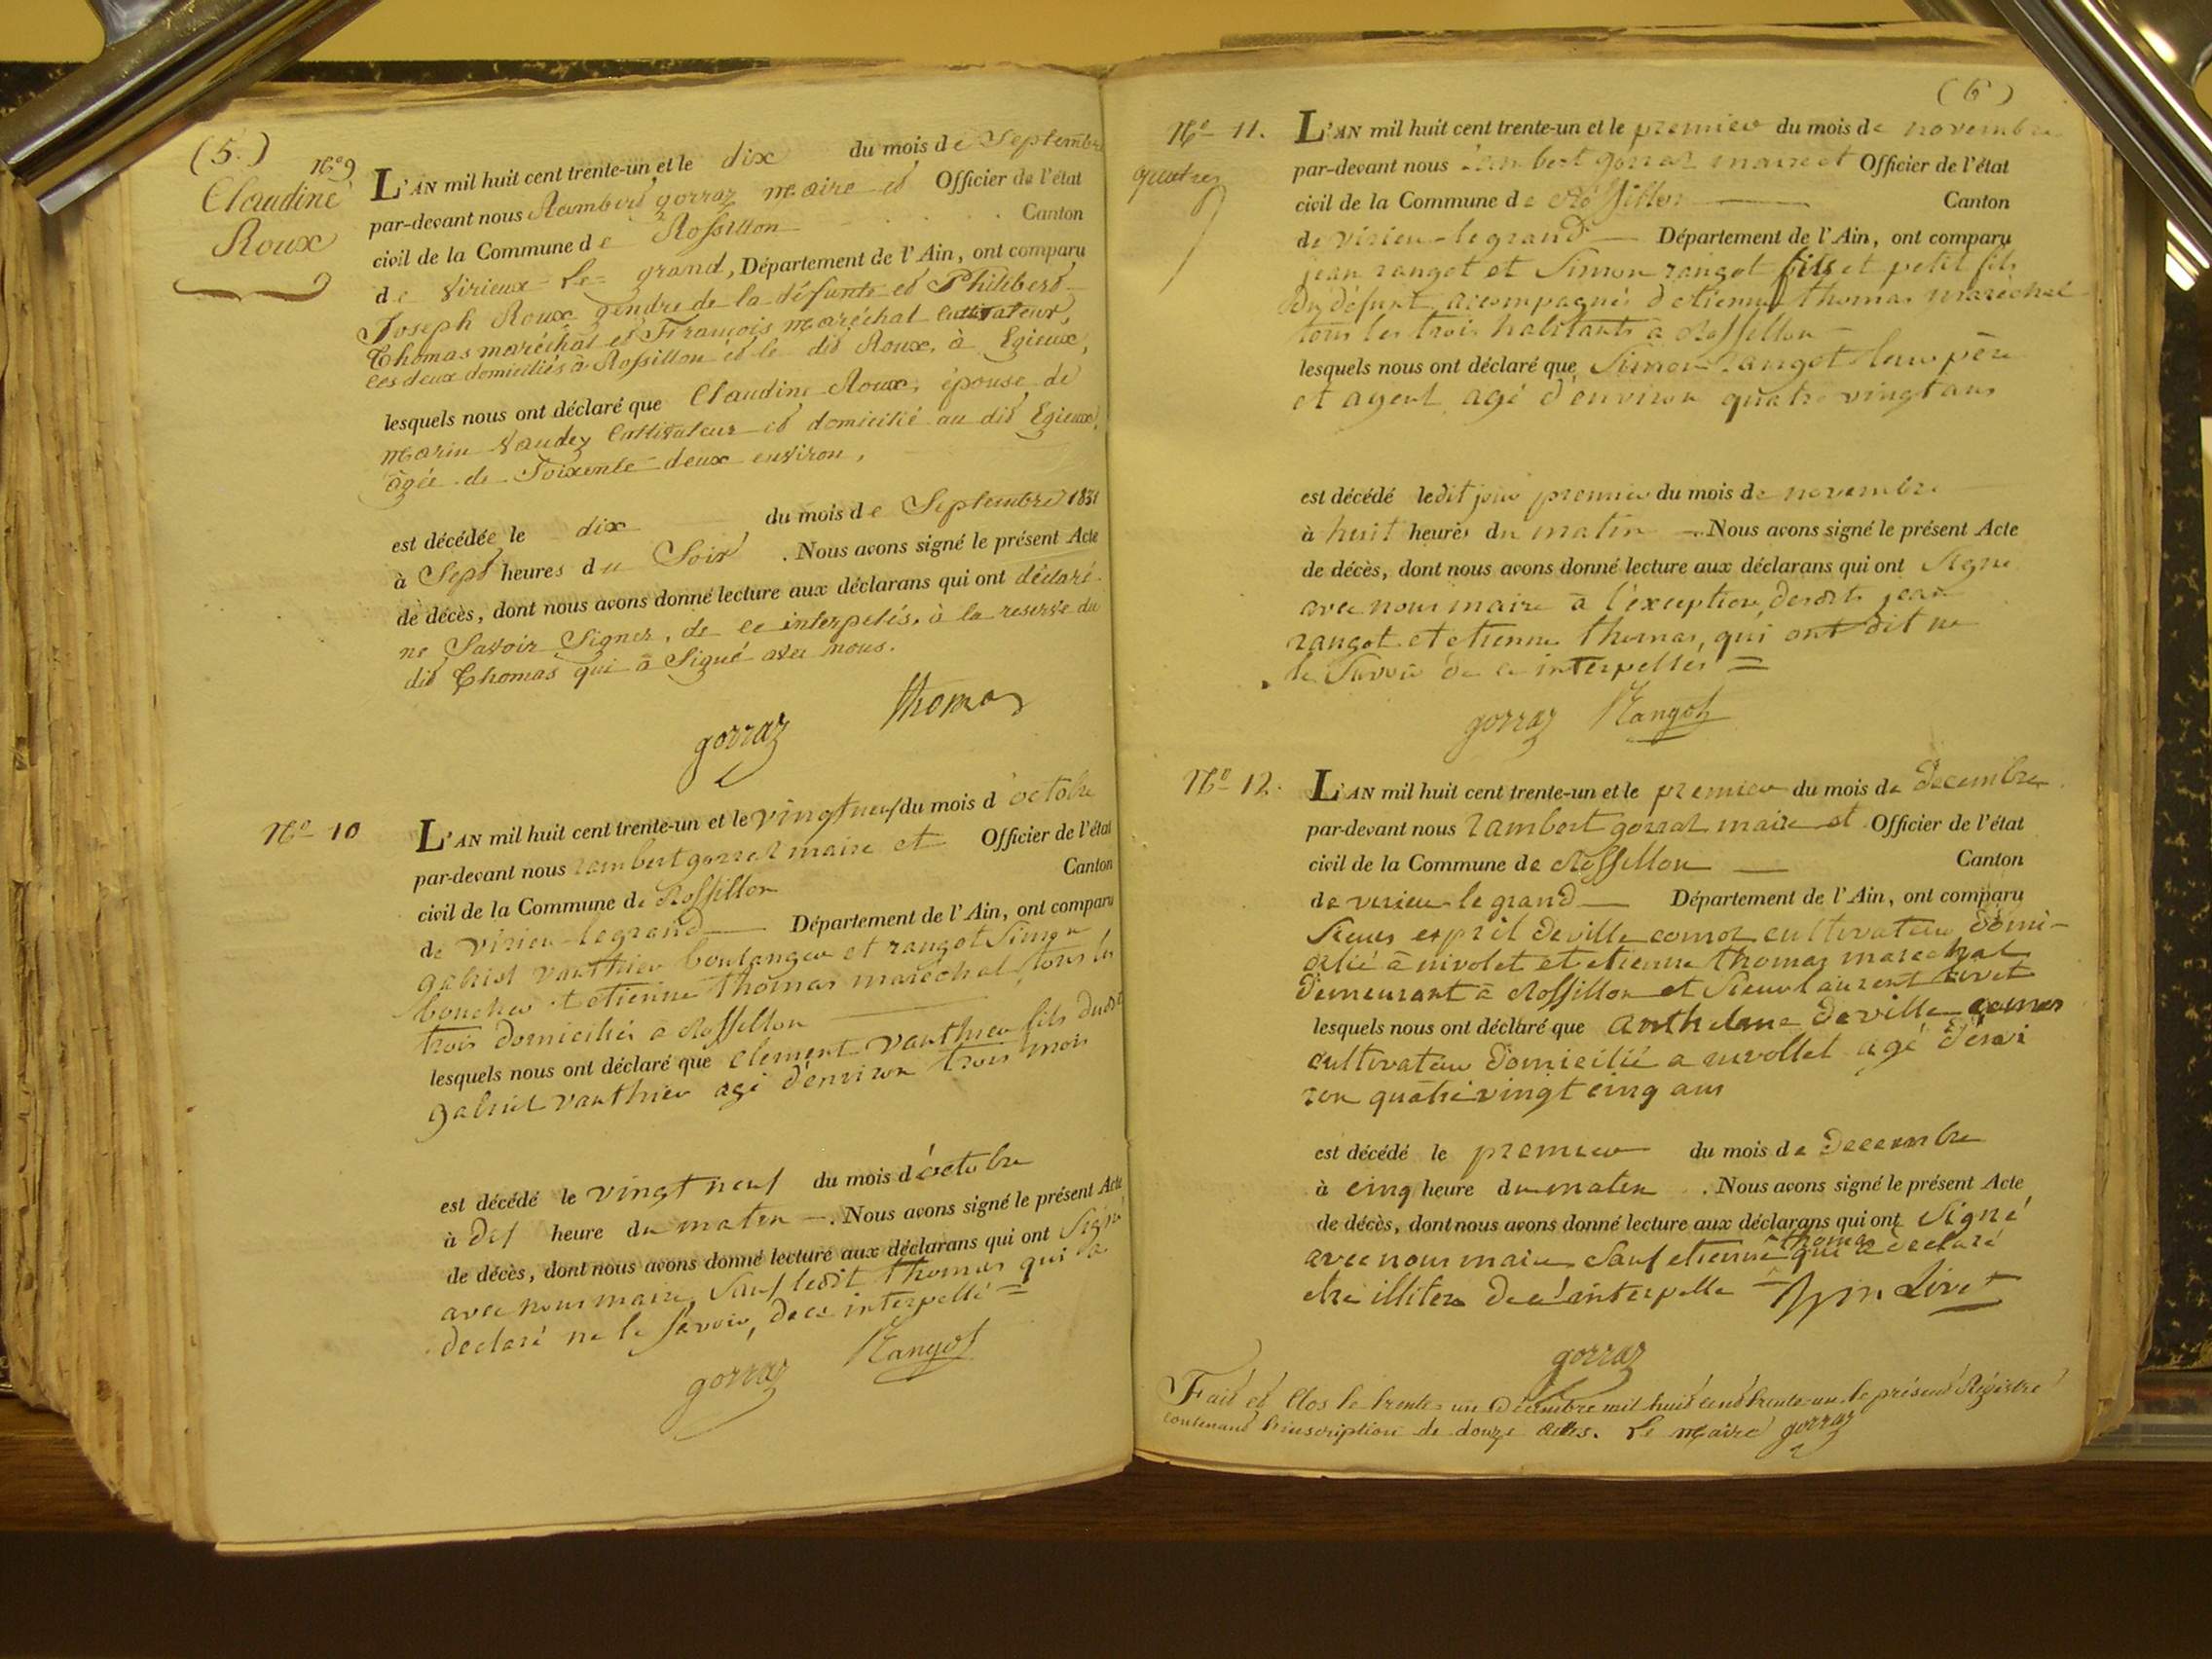 (5.)
N.º 9
Claudine
Roux
L'AN mil huit cent trente-un et le dix du mois de Septembre
par-devant nous Rambert gorraz maire et Officier de l'état
civil de la Commune de Rossillon Canton
de Virieux-Le-grand, Département de l'Ain, ont comparu
Joseph Roux gendre de la défunte et Philibert
Thomas maréchal et François maréchal cultivateur,
les deux domiciliés à Rossillon et le dit Roux, à Egieux,
lesquels nous ont déclaré que Claudine Roux, épouse de
marin Vaudey Cultivateur et domicilié au dit Egieux,
âgée de Soixente-deux environ,
est décédée le dix du mois de Septembre 1831
à Sept heures du Soir. Nous avons signé le présent Acte
de décès, dont nous avons donné lecture aux déclarans qui ont déclaré
ne Savoir Signer, de ce interpelés, à la reserve du
dit Thomas qui a Signé avec nous.
gorraz thomas
N.º 10
L'AN mil huit cent trente-un et le vingt neuf du mois d'octobre
par-devant nous rambert gorraz maire et Officier de l'état
civil de la Commune de Rossillon Canton
de virieu-legrand Département de l'Ain, ont comparu
gabriel vauthier boulanger et rangot Simon
boucher et etienne thomas maréchal, tous les
trois domiciliés à Rossillon
lesquels nous ont déclaré que clement vauthier fils dudit
gabriel vauthier agé d'environ trois mois
est décédé le vingt neuf du mois d'octobre
à dix heure du matin. Nous avons signé le présent Acte
de décès, dont nous avons donné lecture aux déclarans qui ont Signé
avec nous maire, Sauf ledit thomas qui a
declaré ne le Savoir, de ce interpellé =
gorraz Rangot
(6)
N.º 11.
L'AN mil huit cent trente-un et le premier du mois de novembre
par-devant nous rambert gorraz maire et Officier de l'état
civil de la Commune de Rossillon Canton
de virieu-legrand Département de l'Ain, ont comparu
jean rangot et Simon rangot fils et petit fils
du défunt, accompagnés d'etienne thomas maréchal
tous les trois habitants à Rossillon
lesquels nous ont déclaré que Simon rangot leur père
et ayeul agé d'environ quatre vingt ans
est décédé ledit jour premier du mois de novembre
à huit heures du matin. Nous avons signé le présent Acte
de décès, dont nous avons donné lecture aux déclarans qui ont Signé
avec nous maire à l'exception desdits jean
rangot et etienne thomas, qui ont dit ne
le Savoir de ce interpellés =
gorraz Rangot
N.º 12.
L'AN mil huit cent trente-un et le premier du mois de Decembre
par-devant nous rambert gorraz maire et Officier de l'état
civil de la Commune de Rossillon Canton
de virieu-le grand Département de l'Ain, ont comparu
Sieurs esprit deville cultivateur domi-
cilié à nivolet et etienne thomas marechal
demeurant à Rossillon et Sieur laurent livet
lesquels nous ont déclaré que anthelme deville
cultivateur domicilié a nivollet agé d'envi
ron quatre vingt cinq ans
est décédé le premier du mois de Decembre
à cinq heure du matin. Nous avons signé le présent Acte
de décès, dont nous avons donné lecture aux déclarans qui ont Signé
avec nous maire Sauf etienne thomas qui a declaré
etre illiteré de ce interpelle Livet
gorraz
Fait et Clos le trente-un Décembre mil huit cent trente-un le présent Régistre
contenant l'inscription de douze actes. Le maire gorraz